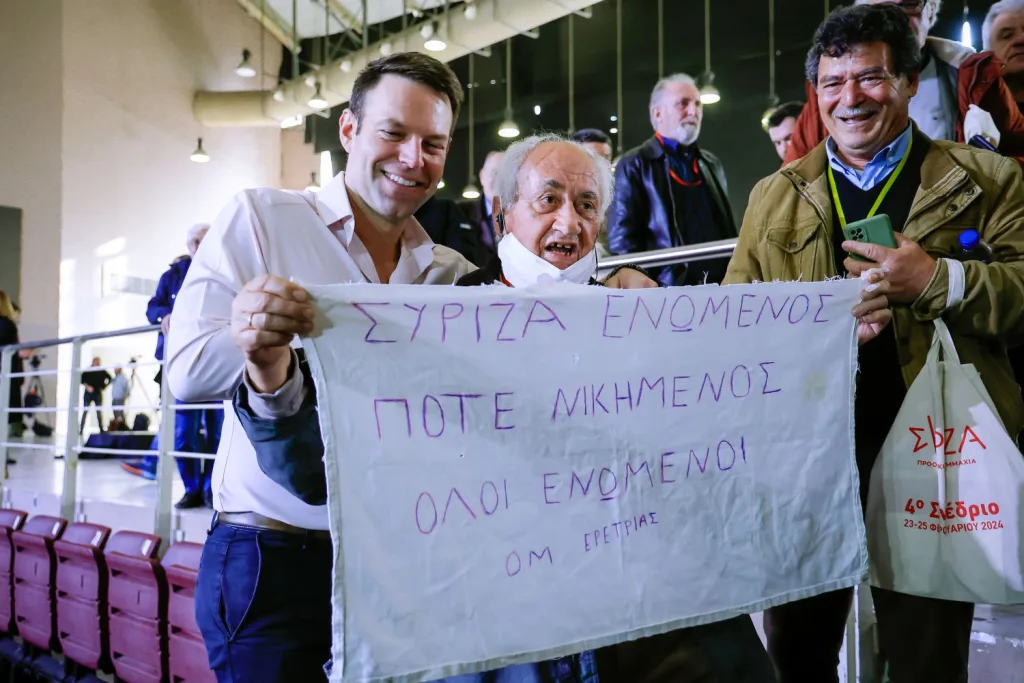 ΣΥΡΙΖΑ ΕΝΩΜΕΝΟΣ
ΠΟΤΕ ΝΙΚΗΜΕΝΟΣ
ΟΛΟΙ ΕΝΩΜΕΝΟΙ
ΟΜ ΕΡΕΤΡΙΑΣ
ΣΥΡΙΖΑ
4ο Συνέδριο
23-25 ΦΕΒΡΟΥΑΡΙΟΥ 2024